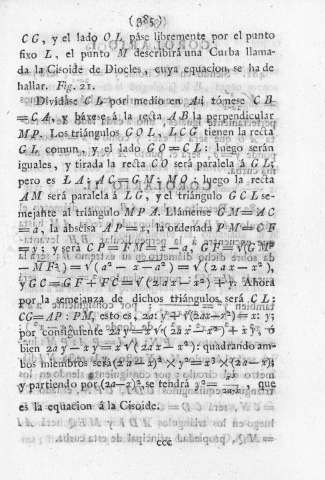 (385)
CG, y el lado OL pase libremente por el punto
fixo L, el punto M describirá una Curba llama-
da la Cisoide de Diocles, cuya equacion se ha de
hallar. Fig. 21.
Dividase CL por medio en A: tómese CB
=CA, y báxese á la recta AB la perpendicular
MP. Los triángulos COL, LCG tienen la recta
GL comun, y el lado GO=CL: luego serán
iguales, y tirada la recta CO será paralela á GL;
pero es LA: AC=GM: MO: luego la recta
AM será paralela á LG, y el triángulo GCL se-
mejante al triángulo MPA. Llámense GM=AC
=a, la abscisa AP=x, la ordenada PM=CF
=y: y será CP=FM=x-a, GF=√(GM²
-MF²)=√(a²-x-a²)=√(2ax-x²),
y GC=GF+FC=√(2ax-x²)+y. Ahora
por la semejanza de dichos triángulos será CL:
CG=AP: PM, esto es, 2a: y+√(2ax-x²)=x: y;
por consiguiente 2ay=x√(2ax-x²)+xy, ó
bien 2ay-xy=x√(2ax-x²): quadrando am-
bos miembros será (2a-x)²×y²=x³×(2a-x);
y partiendo por (2a-x)², se tendrá y²=x³/2a-x, que
es la equacion á la Cisoide.
ccc